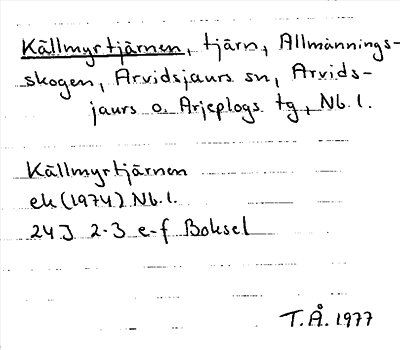 Källmyrtjärnen, tjärn, Allmännings-
skogen, Arvidsjaurs sn, Arvids-
jaurs o. Arjeplogs tg, Nb. l.
Källmyrtjärnen
ek (1974) Nb. l.
24J 2-3 e-f Boksel
T.Å. 1977